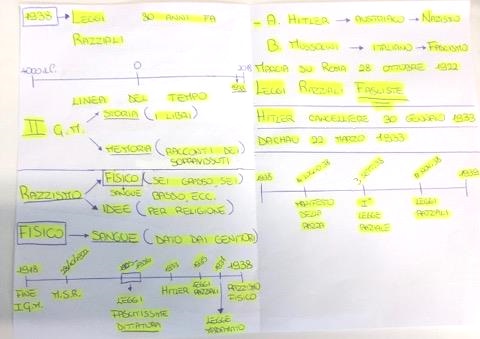 1938 → LEGGI 80 ANNI FA
RAZZIALI
4000 a.C. 0 2018
LINEA DEL TEMPO
II G.M. → STORIA (I LIBRI)
→ MEMORIA (RACCONTI DEI
SOPRAVVISSUTI)
RAZZISMO → FISICO (SEI GRASSO, SEI
SANGUE BASSO, ECC.
→ IDEE (PER RELIGIONE)
FISICO → SANGUE (DATO DAI GENITORI)
1918 1938
FINE
I G.M.
LEGGI
FASCITISSIME
DITTATURA
HITLER
LEGGI
RAZZIALI
RAZZISMO
FISICO
LEGGE
- A. HITLER → AUSTRIACO → NAZISMO
B. MUSSOLINI → ITALIANO → FASCISMO
MARCIA SU ROMA 28 OTTOBRE 1922
LEGGI RAZZIALI FASCISTE
HITLER CANCELLIERE 30 GENNAIO 1933
DACHAU 22 MARZO 1933
1938 1939
MANIFESTO
DELLA
RAZZA
I°
LEGGE
RAZZIALE
LEGGI
RAZZIALI